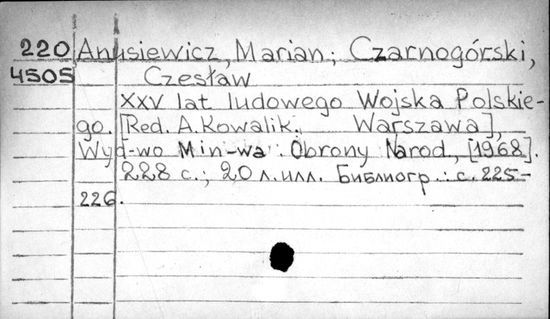 220 Anusiewicz, Marian; Czarnogórski,
4505 Czesław
XXV lat ludowego Wojska Polskie-
go. [Red. A. Kowalik. Warszawa],
Wyd-wo Min-wa Obrony Narod., [1968].
228 с.; 20 л.илл. Библиогр.: с. 225-
226.